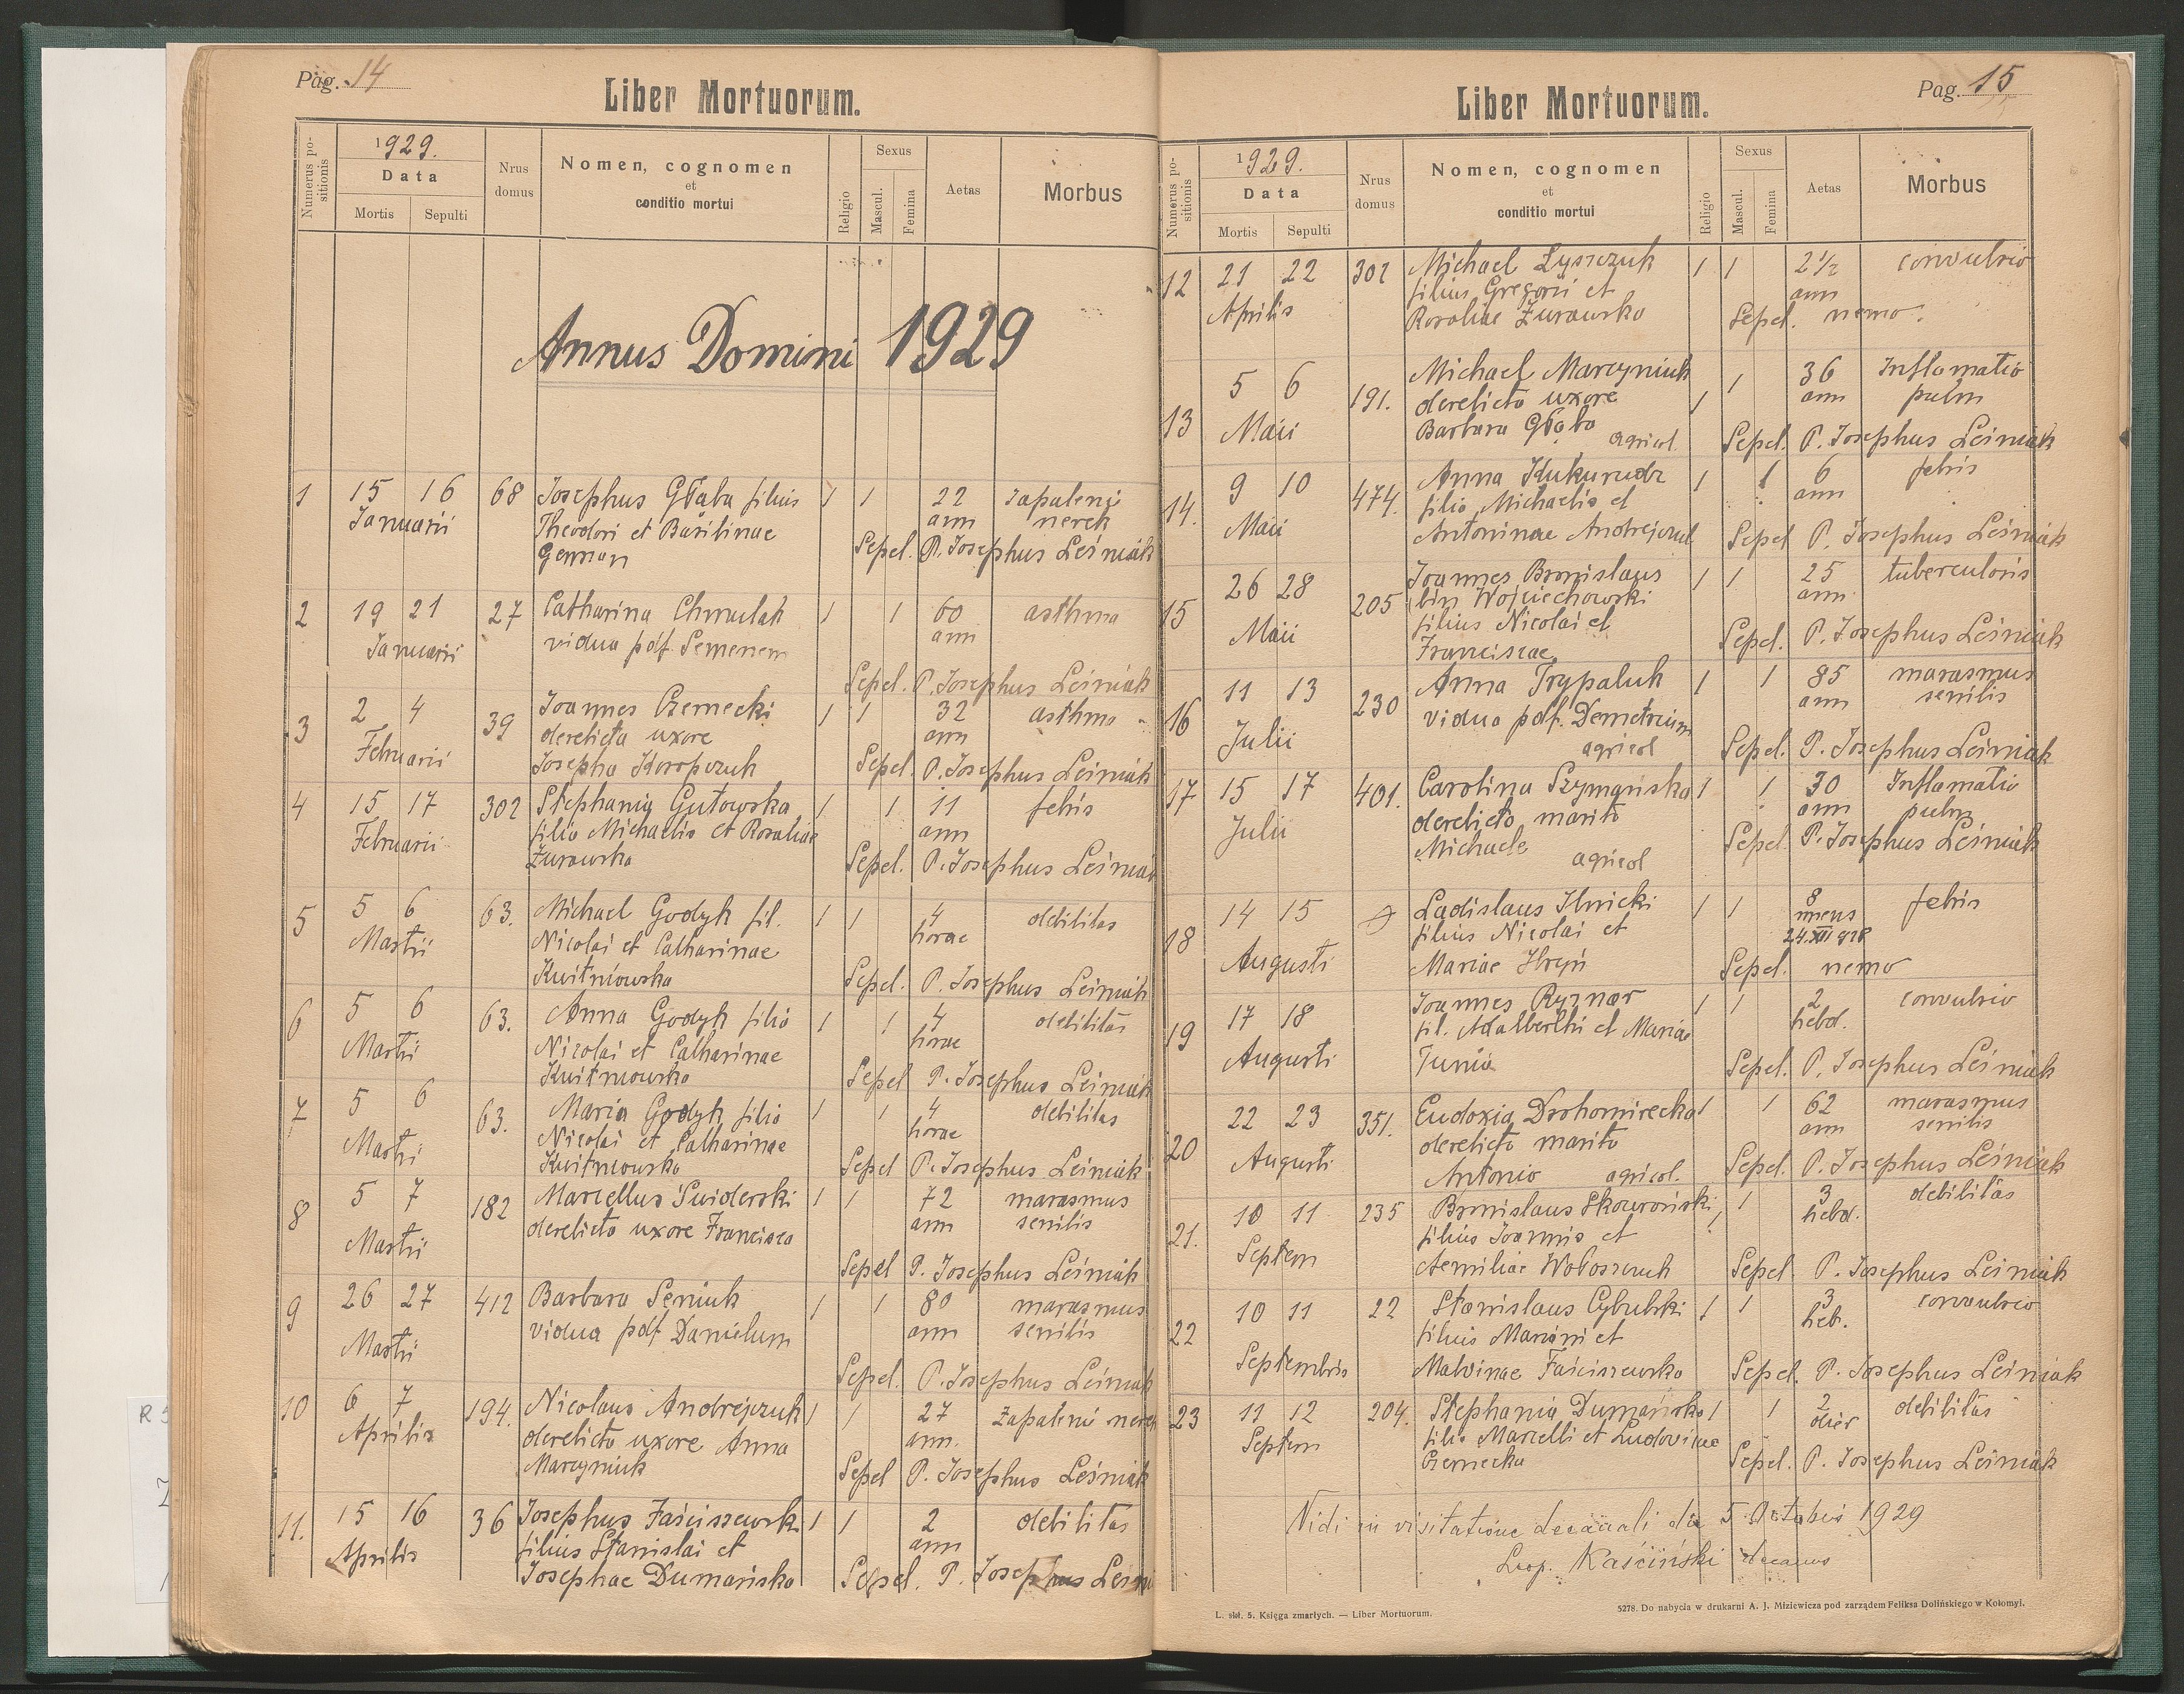 Pag. 14
Liber Mortuorum.
Numerus positionis
1929.
Data
Mortis Sepulti
Nrus domus
Nomen, cognomen
et
conditio mortui
Religio
Sexus
Mascul.
Femina
Aetas
Morbus
Annus Domini 1929
1 15 16 68 Josephus Głąba filius 1 1 22 zapaleni
Januarii Theodori et Basilinae ann nerek
German Sepel. P. Josephus Leśniak
2 19 21 27 Catharina Chmulak 1 1 60 asthma
Januarii vidua pdf. Semenem ann
Sepel. P. Josephus Leśniak
3 2 4 39 Joannes Czernecki 1 1 32 asthma
Februarii derelicta uxore ann
Josepha Koropczuk Sepel. P. Josephus Leśniak
4 15 17 302 Stephania Gutowska 1 1 11 febris
Februarii filia Michaelis et Rosaliae ann
Żurawska Sepel. P. Josephus Leśniak
5 5 6 63. Michael Godyk fil. 1 1 4 debilitas
Martii Nicolai et Catharinae horae
Kwitniowska Sepel. P. Josephus Leśniak
6 5 6 63. Anna Godyk filia 1 1 4 debilitas
Martii Nicolai et Catharinae horae
Kwitniowska Sepel P. Josephus Leśniak
7 5 6 63. Maria Godyk filia 1 1 4 debilitas
Martii Nicolai et Catharinae horae
Kwitniowska Sepel P. Josephus Leśniak
8 5 7 182 Marcellus Świderski 1 1 72 marasmus
Martii derelicta uxore Francisca ann senilis
Sepel P. Josephus Leśniak
9 26 27 412 Barbara Seniuk 1 1 80 marasmus
Martii vidua pdf Danielum ann senilis
Sepel. P. Josephus Leśniak
10 6 7 194. Nicolaus Andrejczuk 1 1 27 zapaleni nerek
Aprilis derelicta uxore Anna ann.
Marcyniuk Sepel P. Josephus Leśniak
11. 15 16 36 Josephus Faściszewski 1 1 2 debilitas
Aprilis filius Stanislai et ann
Josephae Dumańska Sepel. P. Josephus Leśni
Pag. 15
Liber Mortuorum.
Numerus positionis
1929.
Data
Mortis Sepulti
Nrus domus
Nomen, cognomen
et
conditio mortui
Religio
Sexus
Mascul.
Femina
Aetas
Morbus
12 21 22 302 Michael Łyszczuk 1 1 2 1/2 convulsio
Aprilis filius Gregorii et ann
Rosaliae Żurawska Sepel. nemo.
13 5 6 191. Michael Marcyniuk 1 1 36 Inflamatio
Maii derelicta uxore ann pulm
Barbara Głąba agricol. Sepel. P. Josephus Leśniak
14. 9 10 474. Anna Kukurudz 1 1 6 febris
Maii filia Michaelis et ann
Antoninae Andrejczuk Sepel P. Josephus Leśniak
15 26 28 205 Joannes Bronislaus 1 1 25 tuberculosis
Maii bin Wojciechowski ann
filius Nicolai et
Franciscae Sepel. P. Josephus Leśniak
16 11 13 230 Anna Trypaluk 1 1 85 marasmus
Julii vidua pdf. Demetrium ann senilis
agricol Sepel. P. Josephus Leśniak
17 15 17 401. Carolina Szymańska 1 1 30 Inflamatio
Julii derelicto marito ann pulm
Michaele agricol Sepel. P. Josephus Leśniak
18 14 15 Ladislaus Ilnicki 1 1 8 febris
Augusti filius Nicolai et mens
24.XII 928
Mariae Hryń Sepel. nemo
19 17 18 Joannes Ryznar 1 1 2 convulsio
Augusti fil. Adalberthi et Mariae hebd.
Tunia Sepel. P. Josephus Leśniak
20 22 23 351. Eudoxia Drohomirecka 1 1 62 marasmus
Augusti derelicto marito ann senilis
Antonio agricol. Sepel. P. Josephus Leśniak
21. 10 11 235 Bronislaus Skowroński 1 1 3 debilitas
Septem filius Joannis et hebd.
Aemiliae Wołoszczuk Sepel. P. Josephus Leśniak
22 10 11 22 Stanislaus Cybulski 1 1 3 convulsio
Septembris filius Mariani et heb.
Malvinae Faściszewska Sepel. P. Josephus Leśniak
23 11 12 204. Stephania Dumańska 1 1 2 debilitas
Septem filia Marcelli et Ludovicae dier
Czernecka Sepel. P. Josephus Leśniak
Vidi in visitatione decanali die 5 Octobris 1929
Leop. Kaściński decanus
L. skł. 5. Księga zmarłych. — Liber Mortuorum.
5278. Do nabycia w drukarni A. J. Miziewicza pod zarządem Feliksa Dolińskiego w Kołomyi.